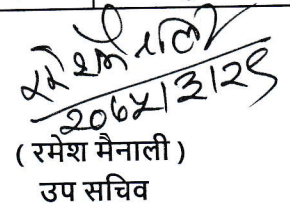 २०७५।३।२९
( रमेश मैनाली )
उप सचिव